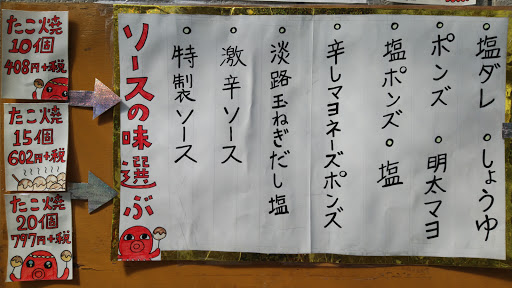 たこ焼
10個
408円+税
たこ焼
15個
602円+税
たこ焼
20個
797円+税
ソースの味選ぶ
・塩ダレ ・しょうゆ
・ポンズ ・明太マヨ
・塩ポンズ ・塩
・辛しマヨネーズポンズ
・淡路玉ねぎだし塩
・激辛ソース
・特製ソース